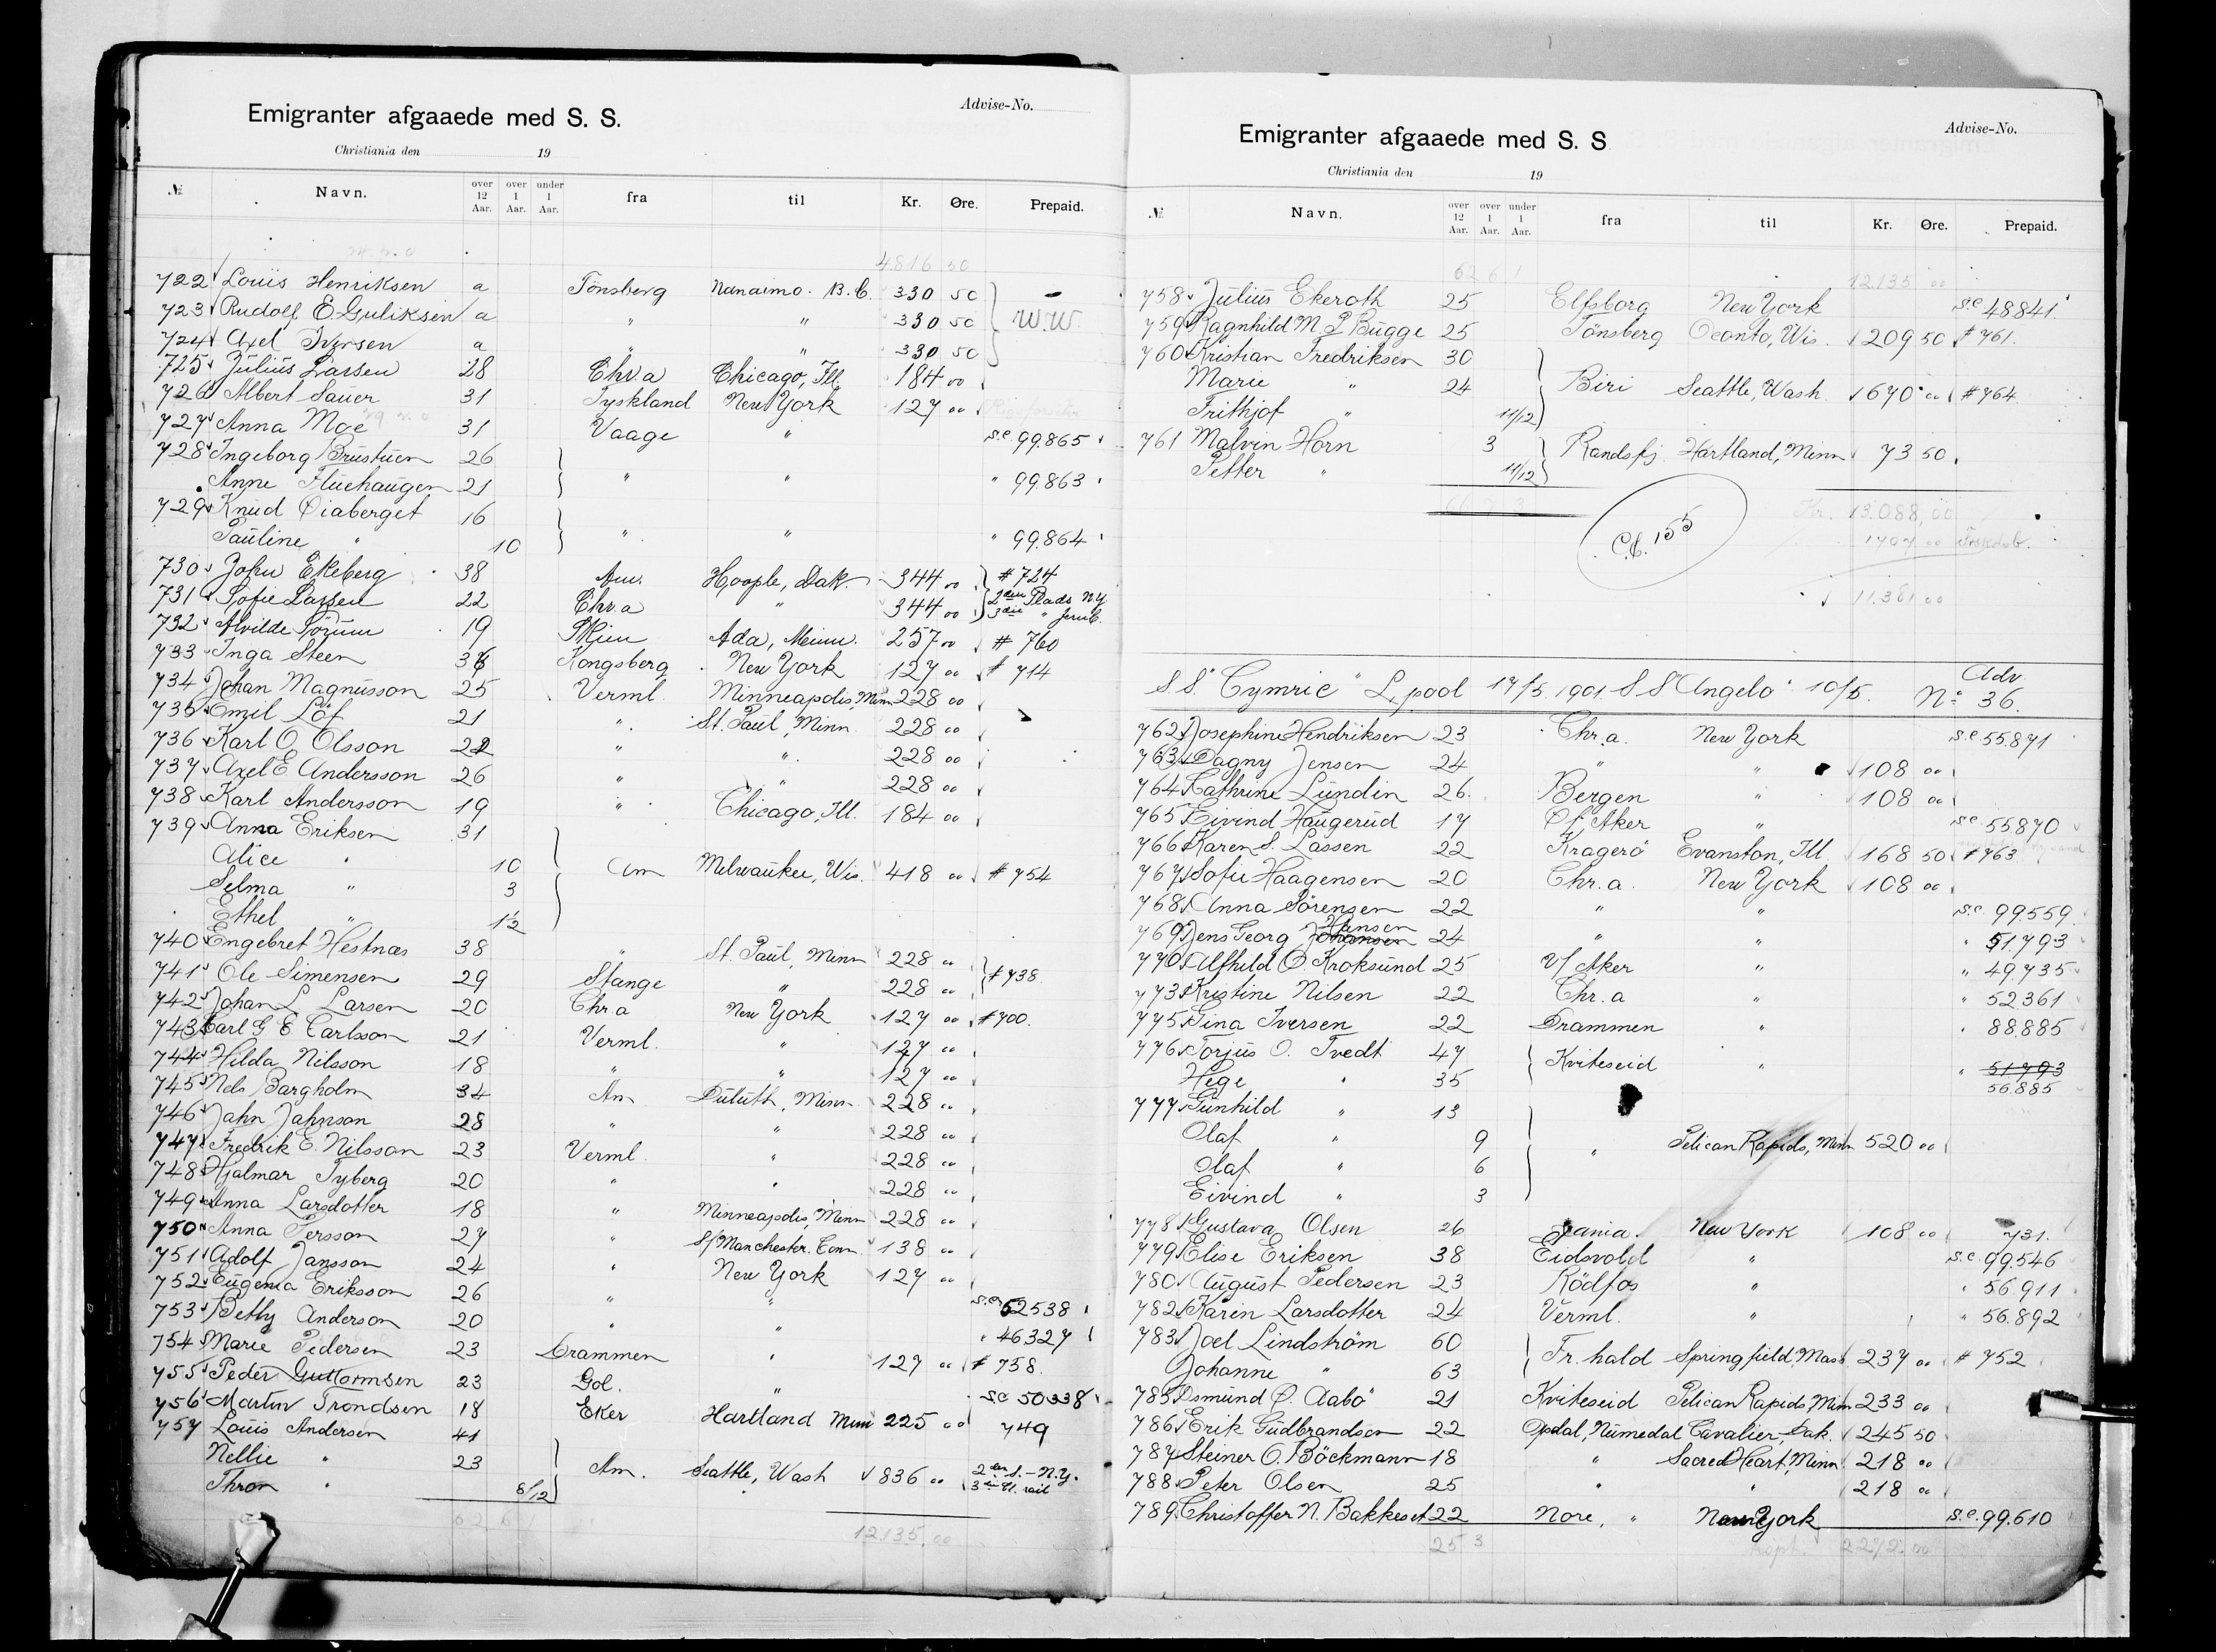 Advise-No.
Emigranter afgaaede med S. S.
Christiania den 19
№ Navn. over 12 Aar. over 1 Aar. under 1 Aar. fra til Kr. Øre. Prepaid.
4816 50
722 Louis Henriksen a Tönsberg Nanaimo. B.C. 330 50
723 Rudolf E. Guliksen a " " 330 50 W.W.
724 Axel Iversen a " " 330 50
725 Julius Larsen 28 Chr.a Chicago, Ill. 184 00
726 Albert Sauer 31 Tyskland New York 127 00
727 Anna Moe 31 Vaage " s.c 99.865
728 Ingeborg Brustuen 26
Anne Fluehaugen 21 " " " 99.863
729 Knud Øiaberget 16
Pauline " 10 " " " 99.864
730 John Ekeberg 38 Am. Hoople, Dak. 344 00 # 724
731 Sofie Larsen 22 Chr.a " 344 00 2den Plads N.Y. 3die " Jernb.
732 Alvilde Sörum 19 Skien Ada, Minn. 257 00 # 760
733 Inga Steen 36 Kongsberg New York 127 00 # 714
734 Johan Magnusson 25 Verml. Minneapolis, Minn 228 00
735 Emil Löf 21 " St. Paul, Minn. 228 00
736 Karl O. Olsson 22 " " 228 00
737 Axel E. Andersson 26 " " 228 00
738 Karl Andersson 19 " Chicago, Ill. 184 00
739 Anna Eriksen 31
Alice " 10 Am Milwaukee, Wis. 418 00 # 754
Selma " 3
Ethel " 1½
740 Engebret Hestnæs 38 " St. Paul, Minn 228 00
741 Ole Simensen 29 Stange " 228 00 # 738
742 Johan L. Larsen 20 Chr.a New York 127 00 # 700.
743 Carl G E Carlsson 21 Verml. " 127 00
744 Hilda Nilsson 18 " " 127 00
745 Nels Bargholm 34 Am Duluth, Minn. 228 00
746 Jahn Jahnson 28 " " 228 00
747 Fredrik E. Nilsson 23 Verml. " 228 00
748 Hjalmar Tyberg 20 " " 228 00
749 Anna Larsdotter 18 " Minneapolis, Minn 228 00
750 Anna Persson 27 " S/Manchester. Conn 138 00
751 Adolf Jansson 24 " New York 127 00
752 Eugenia Eriksson 26 " " s.c 62538
753 Betty Anderson 20 " " " 46327
754 Marie Pedersen 23 Drammen " 127 00 # 758.
755 Peder Guttormsen 23 Gol. " sc 50338
756 Martin Trondsen 18 Eker Hartland Minn 225 00 749
757 Louis Andersen 41
Nellie " 23 Am. Seattle, Wash 836 00 2den S. - N.Y. 3die Kl. rail
Thron " 8/12
62 6 1 12135,00
Advise-No.
Emigranter afgaaede med S. S
Christiania den 19
№ Navn. over 12 Aar. over 1 Aar. under 1 Aar. fra til Kr. Øre. Prepaid.
62 6 1 12.135 00
758 Julius Ekeroth 25 Elfsborg New York s.c 48841
759 Ragnhild M. P Bugge 25 Tönsberg Oconto, Wis. 209 50 # 761.
760 Kristian Fredriksen 30
Marie " 24 Biri Seattle, Wash 670 00 # 764
Frithjof " 11/12
761 Malvin Horn 3 Randsfj Hartland, Minn 73 50
Petter " 11/12
Kr. 13.088,00
C.C. 155
11.361 00
S.S. "Cymric" L,pool 17/5 1901 S S "Angelo" 10/5. Adv. No 36.
762 Josephine Hendriksen 23 Chr.a. New York s.c 55.871
763 Dagny Jensen 24 " " 108 00
764 Cathrine Lundin 26. Bergen " 108 00
765 Eivind Haugerud 17 Ø/ Aker " s.c 55870
766 Karen S. Lassen 22 Kragerö Evanston, Ill. 168 50 # 763
767 Sofie Haagensen 20 Chr.a. New York 108 00
768 Anna Sörensen 22 " " s.c. 99559.
769 Jens Georg Johansen Hansen 24 " " " 51.793
770 Alfhild O. Kroksund 25 V/ Aker " " 49,735
773 Kristine Nilsen 22 Chr. a " " 52.361
775 Gina Iversen 22 Drammen " " 88.885
776 Torjus O. Tvedt 47 Kviteseid " " 51793
Hege " 35 56.885
777 Gunhild " 13
Olaf " 9 " Pelican Rapids, Minn 520 00
Olaf " 6
Eivind " 3
778 Gustava Olsen 26 New York 108 00 731.
779 Elise Eriksen 38 Eidsvold " s.c. 99.546
780 August Pedersen 23 Rödfos " " 56.911
782 Karin Larsdotter 24 Verml. " " 56.892
783 Joel Lindström 60
Johanne " 63 Fr. hald Springfield Mass. 237 00 # 752
785 Osmund O. Aabö 21 Kviteseid Pelican Rapids, Minn 233 00
786 Erik Gudbrandsen 22 Opdal, Numedal Cavalier, Dak. 245 50
787 Steiner O. Böckmann 18 " Sacred Heart, Minn. 218 00
788 Peter Olsen 25 " " 218 00
789 Christoffer N. Bakkeset 22 Nore, " New York s.c. 99.610
25 3 2272.00